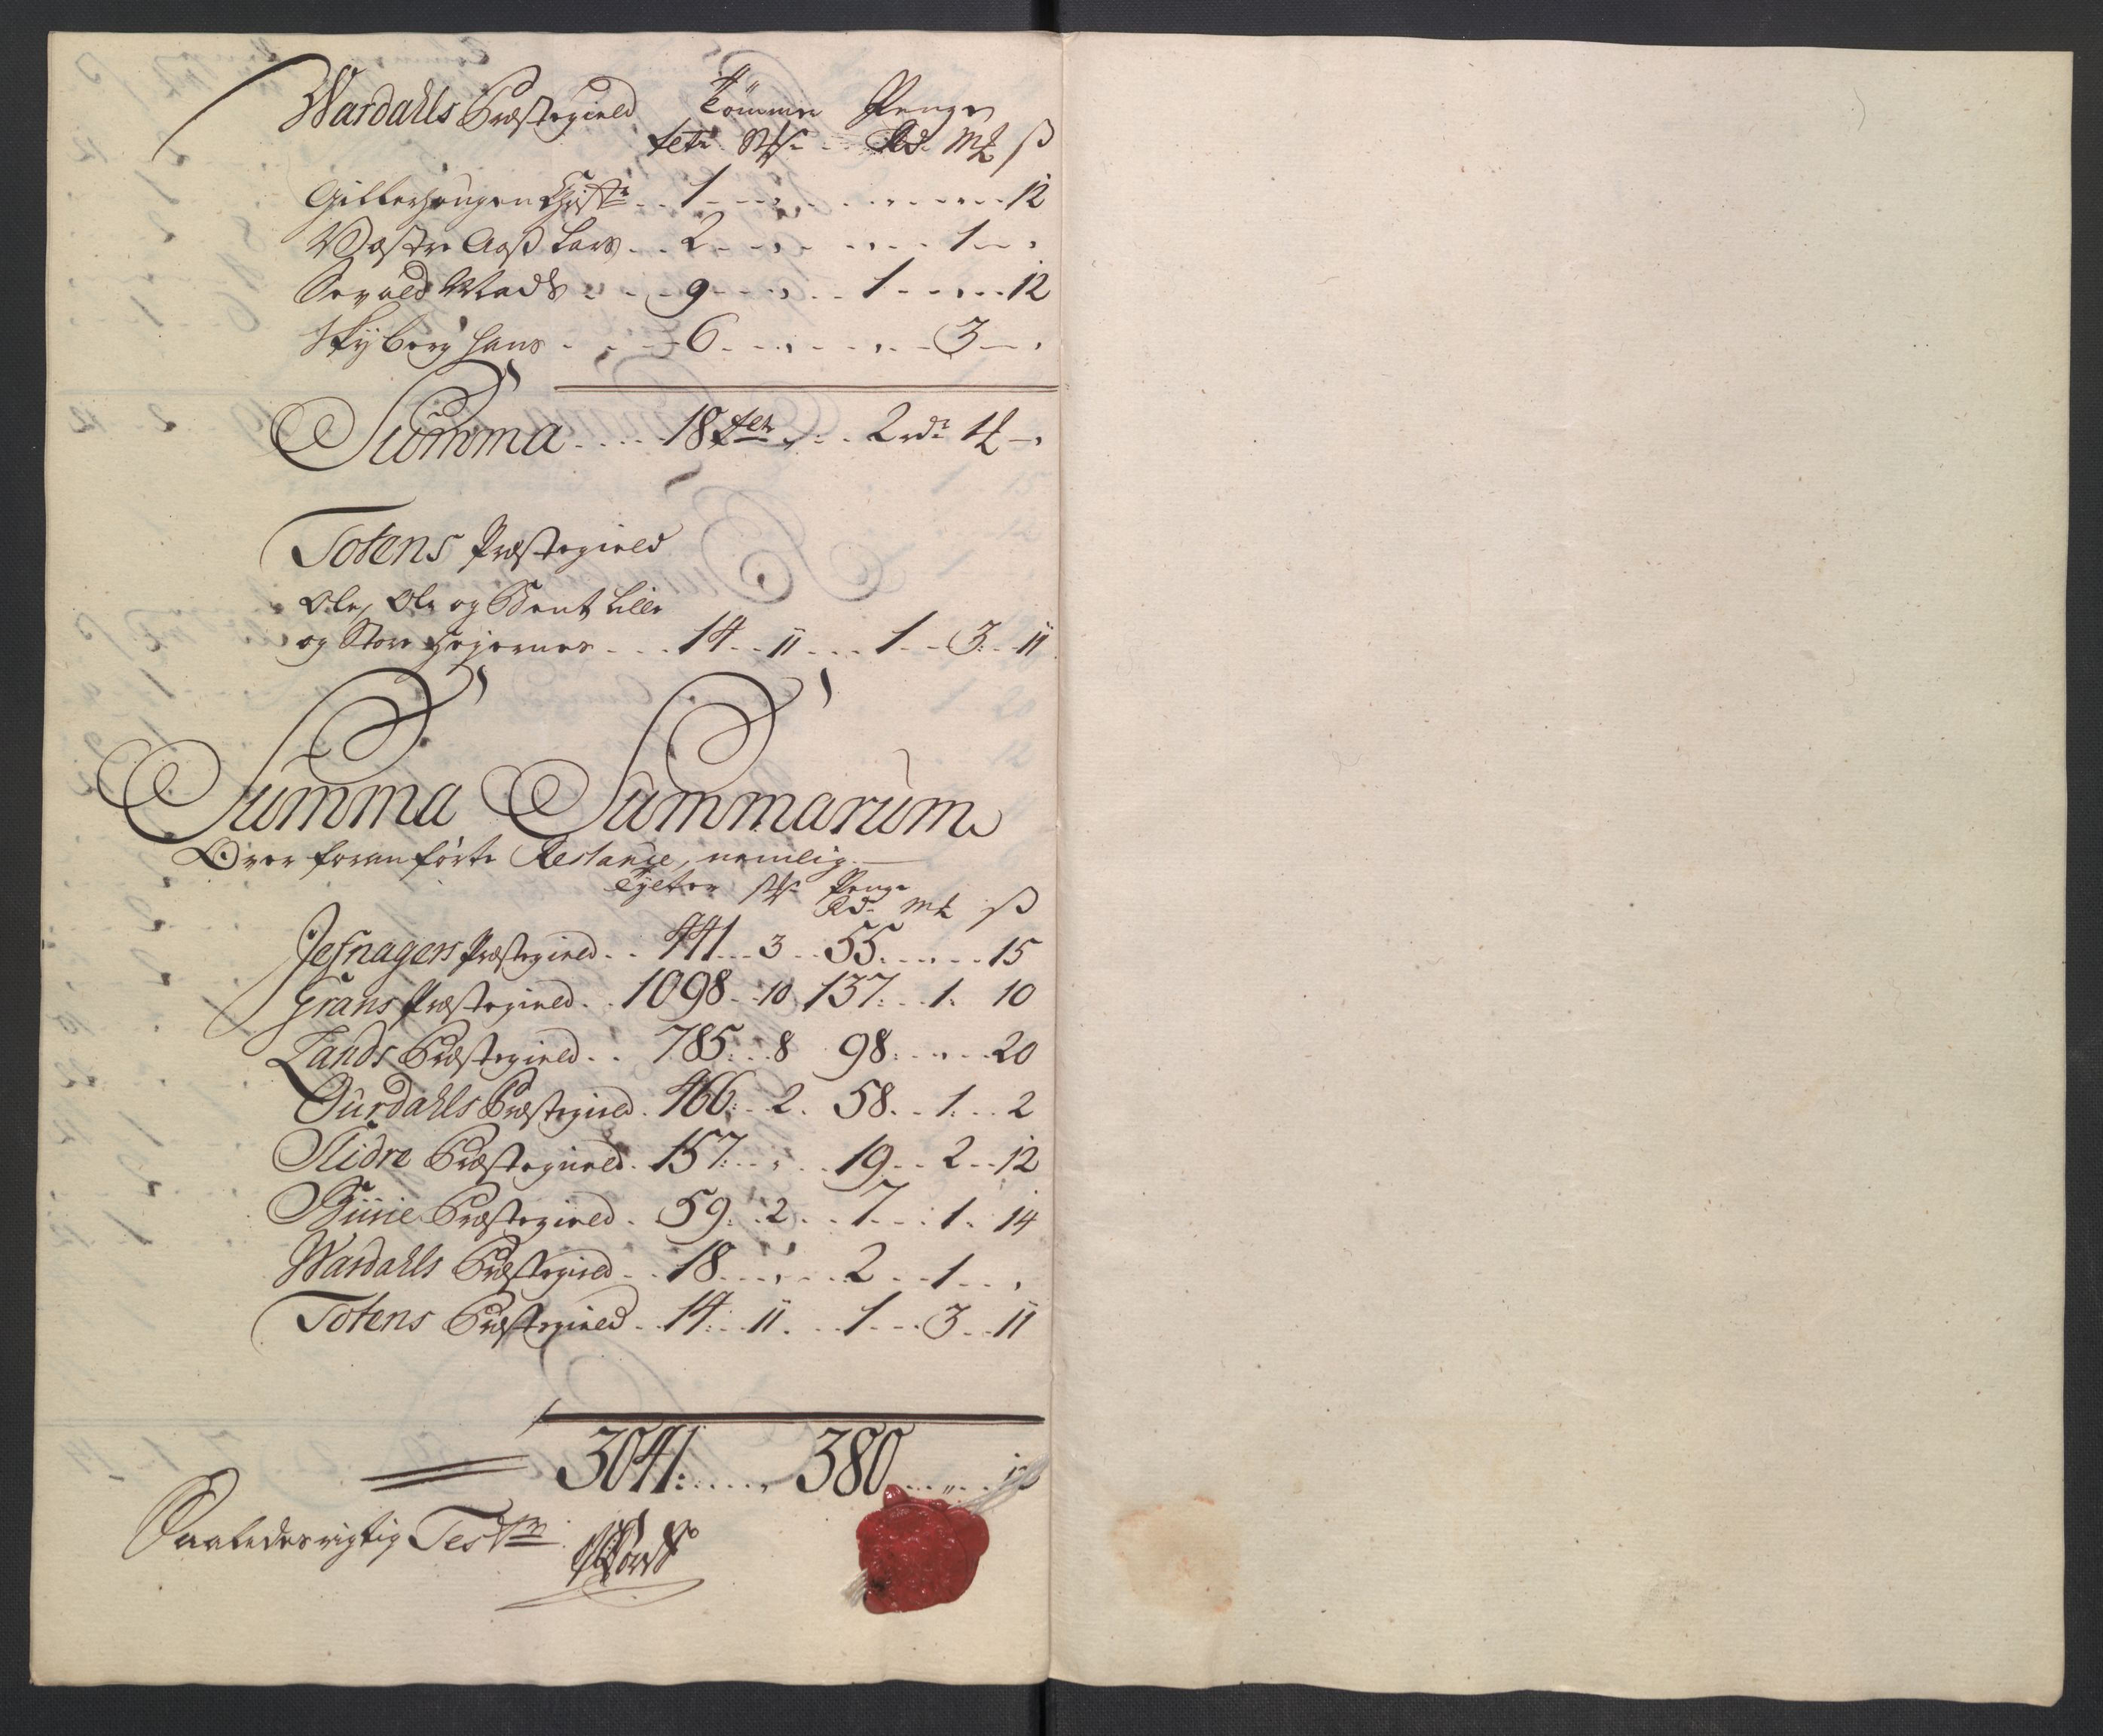 Wardahls Præstegield Tömmer Penge
tylt: St: Rd: Mk ß
Gilterhougen Christ: 1 12
Westre Aaß Lars 2 1
Sevald Mads 9 1 12
Skyberg Hans 6 3
Summa 18 tylt 2 rdr 1 Mk
Totens Præstegield
Ole, Ole og Bent Lille
og Store Hejernes 14 11 1 3 11
Summa Summarum
Over foranførte Restance, nemlig
Tylter St: Penge
Rd: Mk ß
Jefnagers Præstegield 441 3 55 15
Grans Præstegield 1098 10 137 1 10
Lands Præstegield 785 8 98 20
Ourdahls Præstegield 466 2 58 1 2
Slidre Præstegield 157 19 2 12
Præstegield 59 2 7 1 14
Wardahls Præstegield 18 2 1
Totens Præstegield 14 11 1 3 11
3041 380
Saaledes rigtig Test: